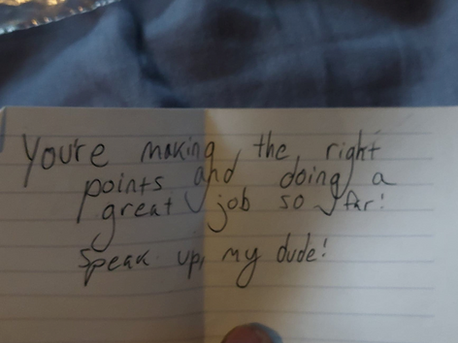 You're making the right
points and doing a
great job so far!
Speak up, my dude!